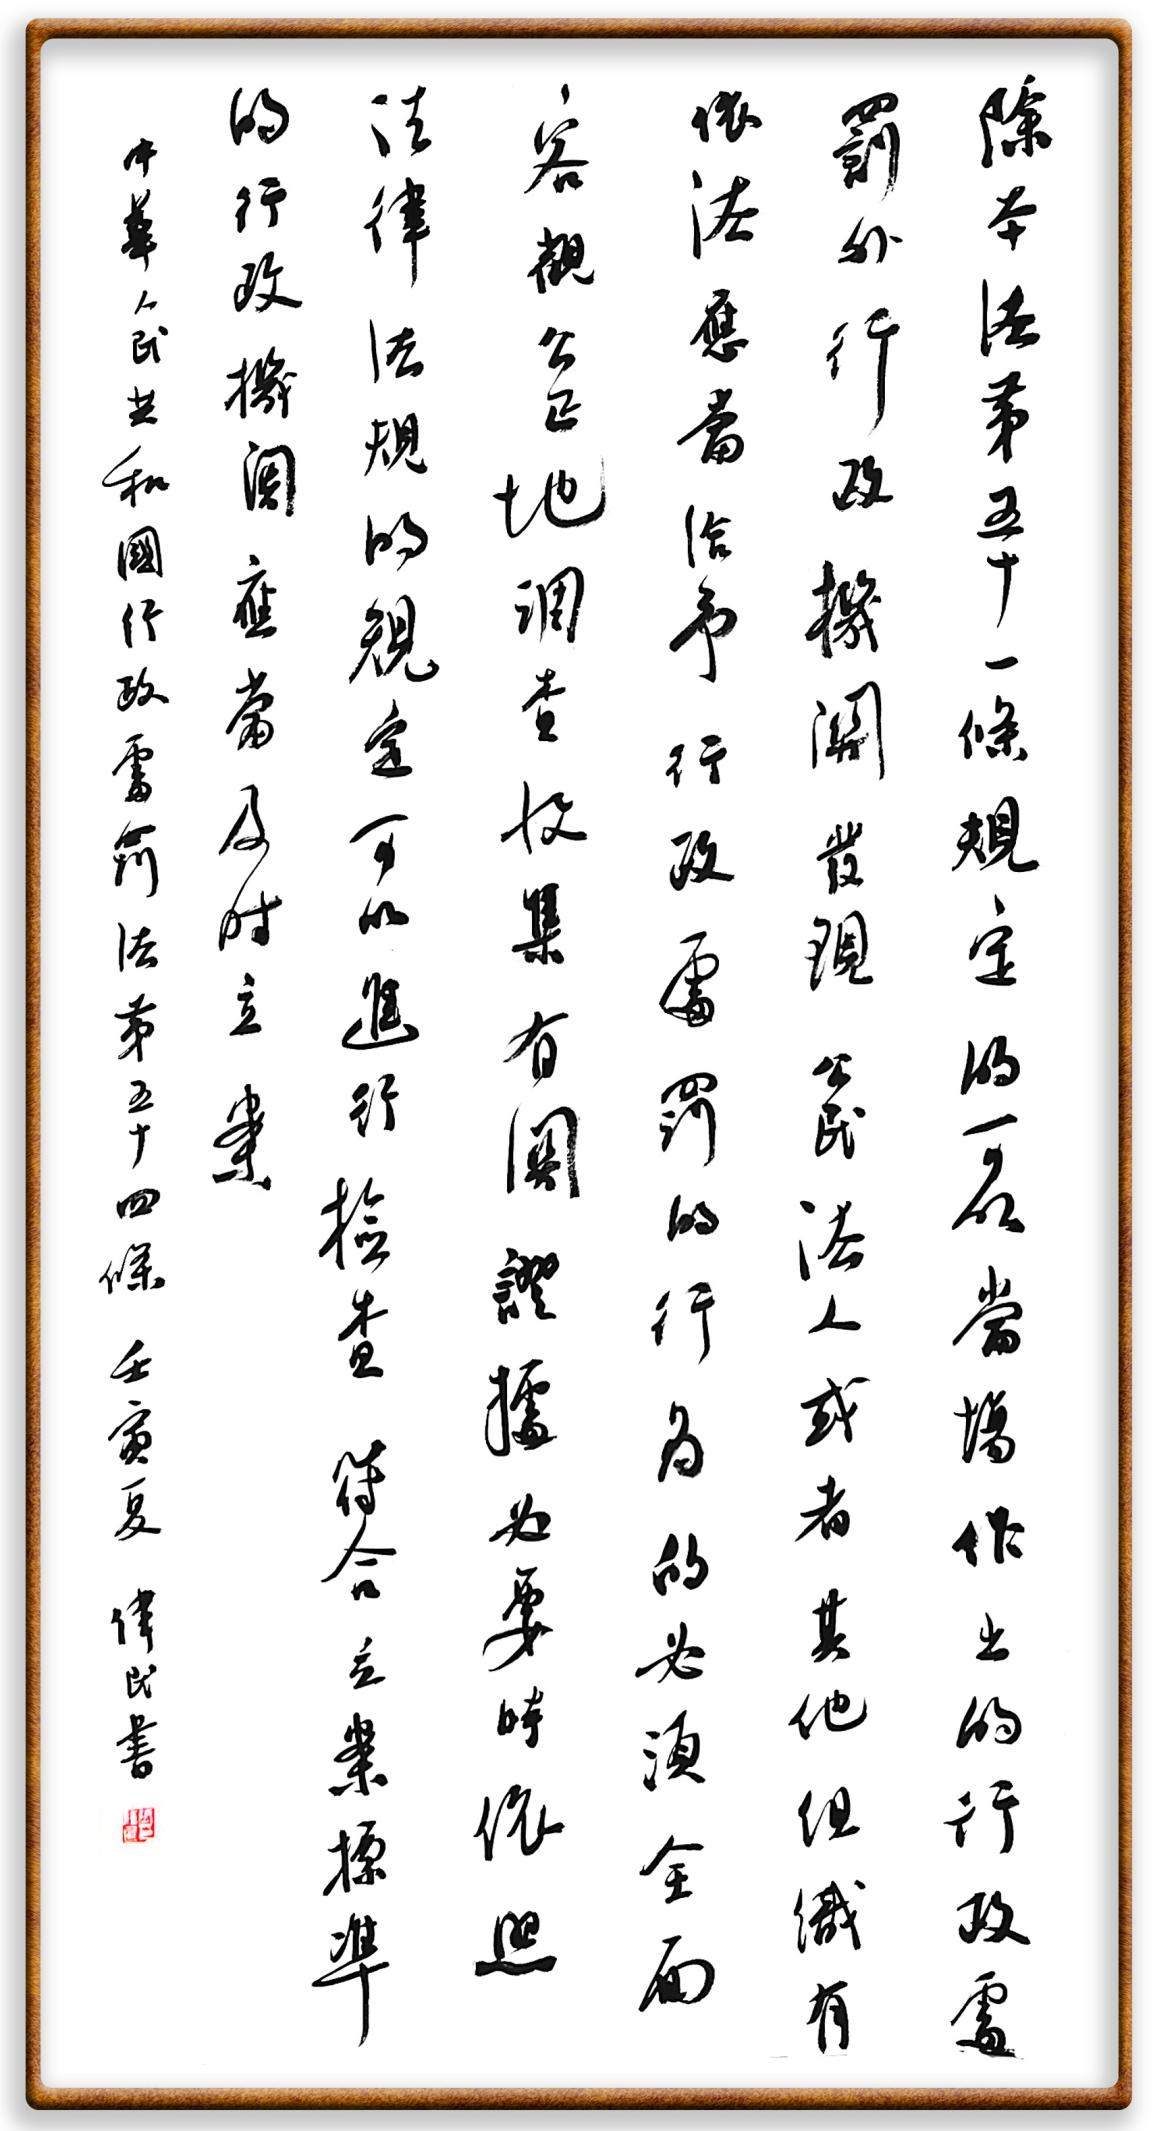 除本法第五十一條規定的可以當場作出的行政處
罰外行政機關發現公民法人或者其他组織有
依法應當给予行政處罰的行为的必須全面
客觀公正地調查收集有關證據必要時依照
法律法規的規定可以進行檢查符合立案標準
的行政機關應當及时立案
中華人民共和國行政處罰法第五十四條 壬寅夏 偉民書